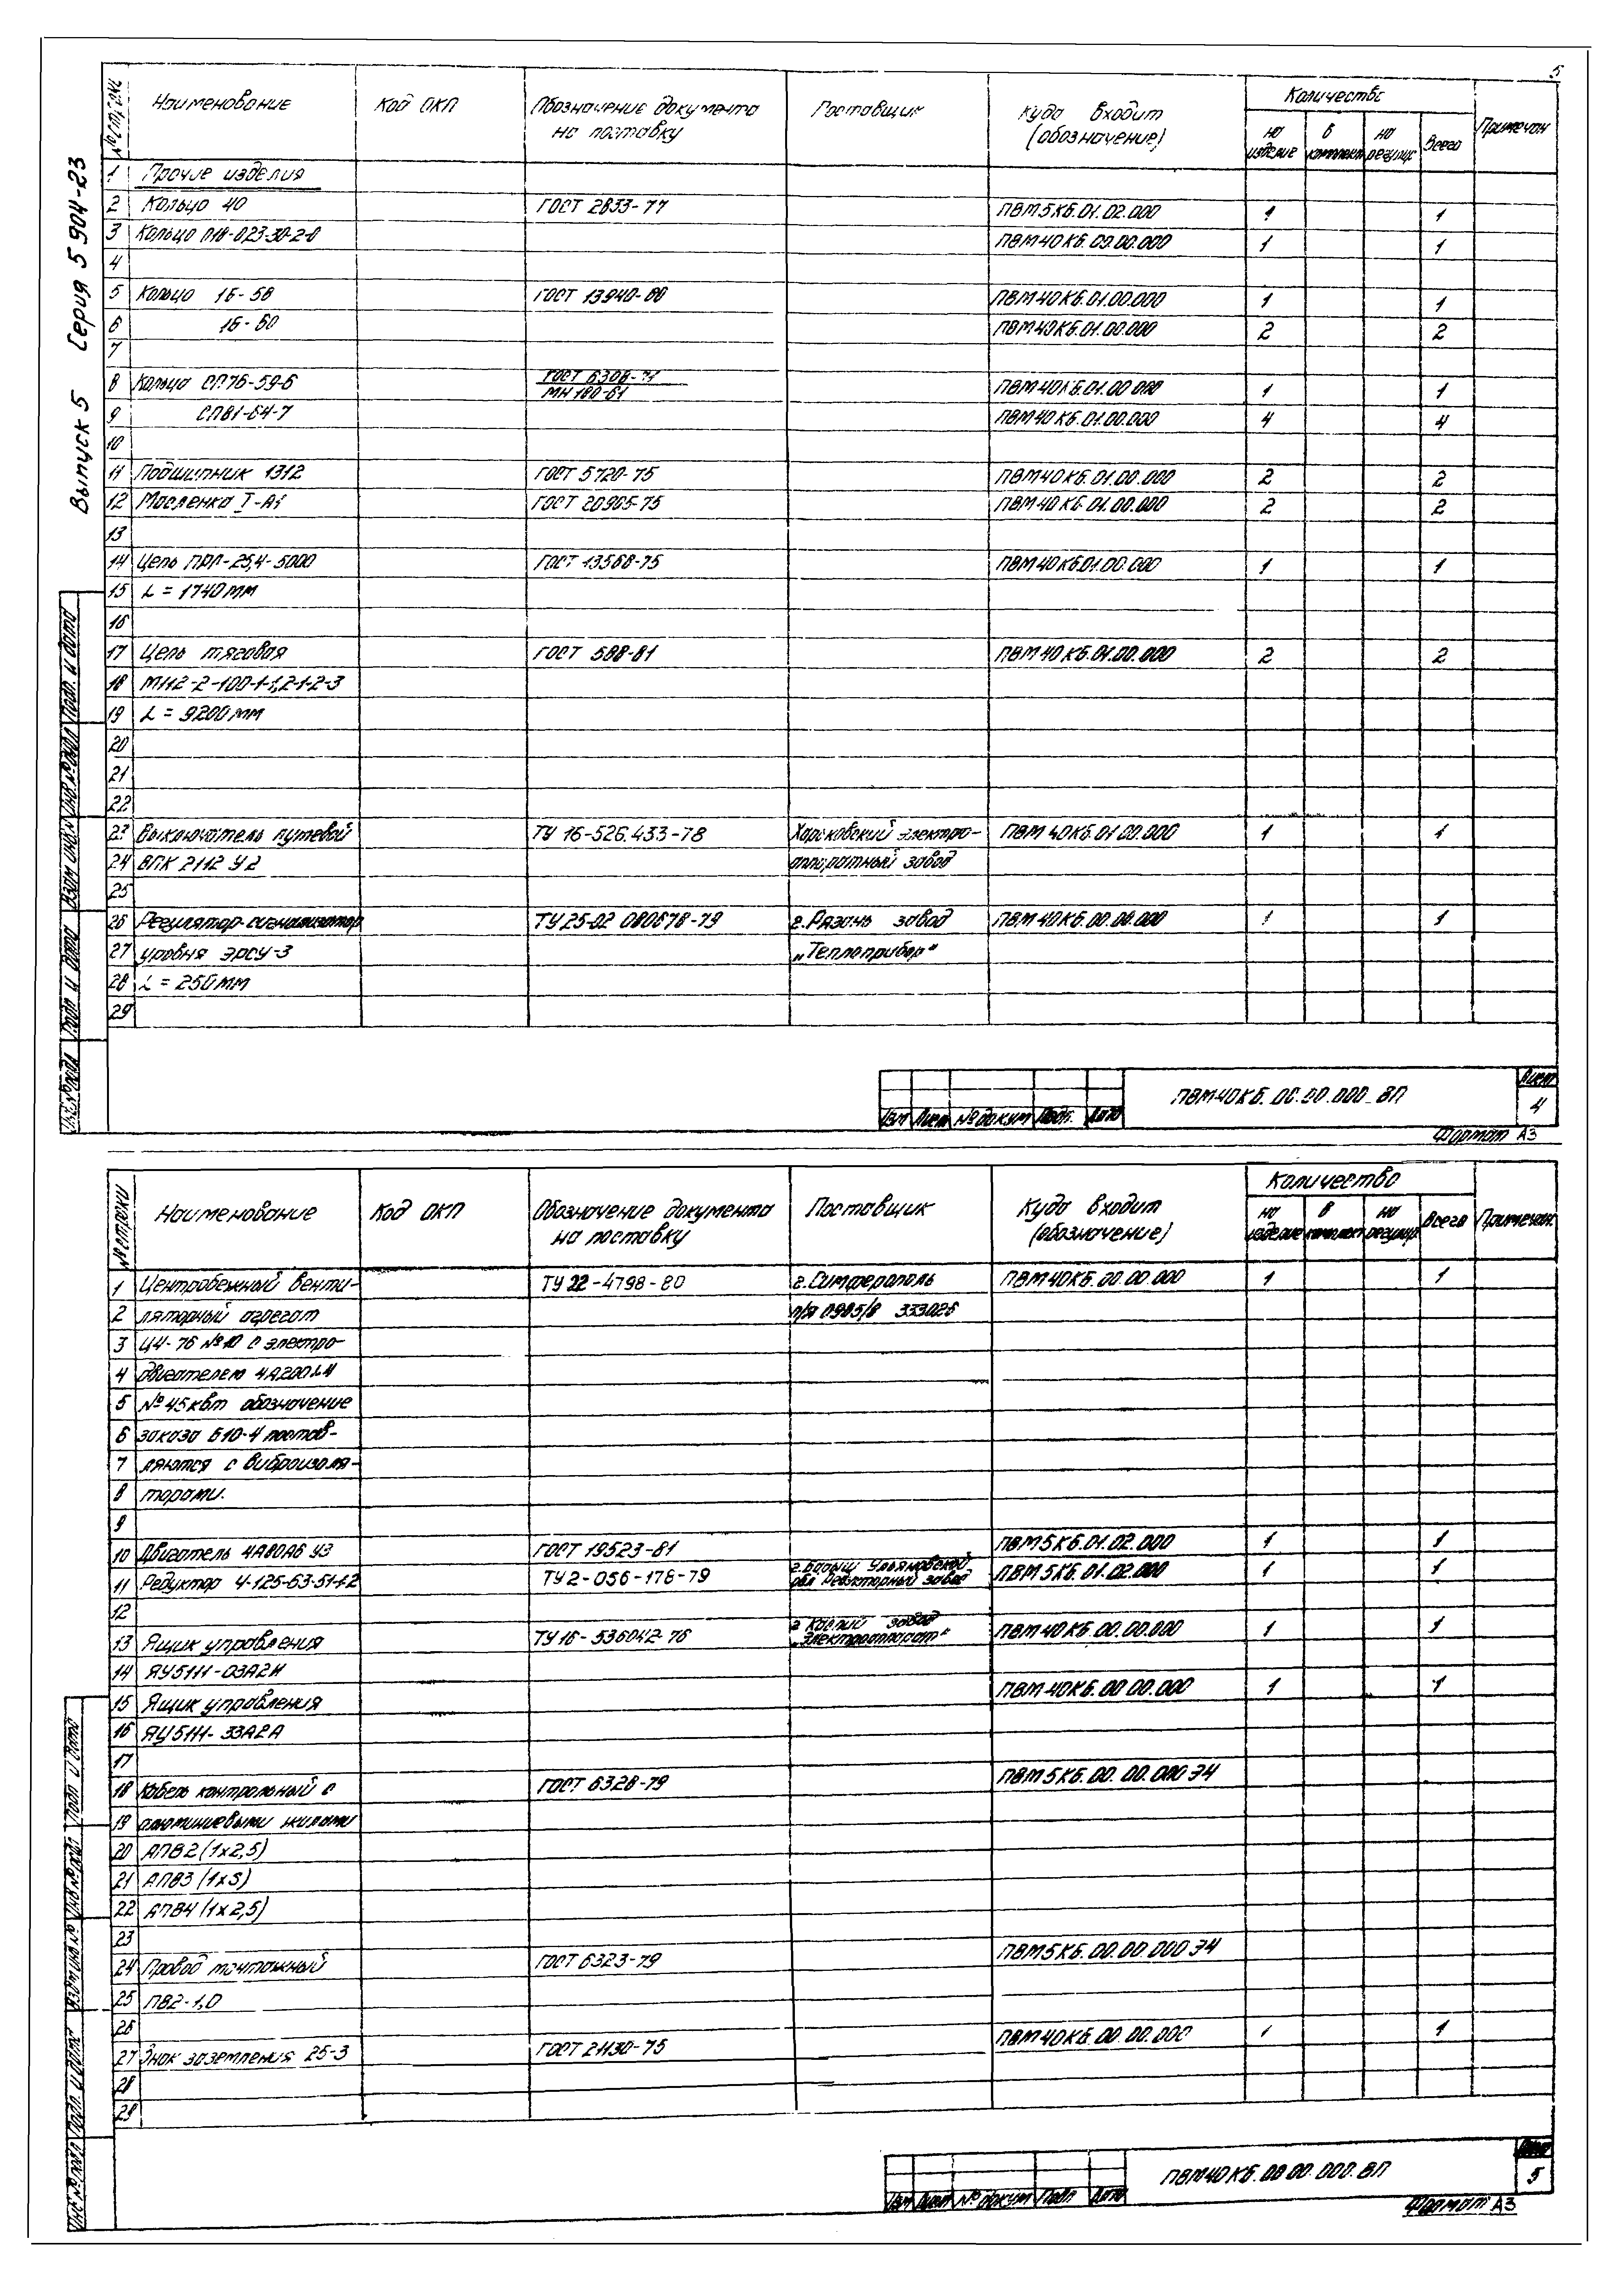 5
Выпуск 5 Серия 5.904-23
Наименование Код ОКП Обозначение документа на поставку Поставщик Куда входит (обозначение) Количество Примечан
на изделие в комплект на регулир Всего
1 Прочие изделия
2 Кольцо 40 ГОСТ 2833-77 ПВМ5КБ.01.02.000 1 1
3 Кольцо ПВМ40КБ.00.00.000 1 1
4
5 Кольцо 1Б-58 ГОСТ 13940-80 ПВМ40КБ.01.00.000 1 1
6 1Б-60 ПВМ40КБ.01.00.000 2 2
7
8 Кольцо СП76-59-6 ГОСТ 6308-71 МН 180-61 ПВМ40КБ.01.00.000 1 1
9 СП81-64-7 ПВМ40КБ.01.00.000 4 4
10
11 Подшипник 1312 ГОСТ 5720-75 ПВМ40КБ.01.00.000 2 2
12 Масленка I-А1 ГОСТ 20905-75 ПВМ40КБ.01.00.000 2 2
13
14 Цепь ПРЛ-25,4-5000 ГОСТ 13568-75 ПВМ40КБ.01.00.000 1 1
15 L = 1740мм
16
17 Цепь тяговая ГОСТ 588-81 ПВМ40КБ.01.00.000 2 2
18 М112-2-100-1-1,2-1-2-3
19 L = 9200мм
20
21
22
23 Выключатель путевой ТУ 16-526.433-78 Харьковский электро- ПВМ40КБ.01.00.000 1 1
24 ВПК 2112 У2 аппаратный завод
25
26 Регулятор-сигнализатор ТУ 25-02 080678-79 г.Рязань завод ПВМ40КБ.00.00.000 1 1
27 уровня ЭРСУ-3 „Теплоприбор“
28 L = 250мм
29
Изм Лист № докум Подп. Дата
ПВМ40КБ.00.00.000 ВП
Лист 4
Формат А3
Инв.№ подл Подп и дата Взам инв.№ Инв №дубл Подп. и дата
№ строки Наименование Код ОКП Обозначение документа на поставку Поставщик Куда входит (обозначение) Количество Примечан.
на изделие в комплект на регулир Всего
1 Центробежный венти- ТУ 22-4798-80 г.Симферополь ПВМ40КБ.00.00.000 1 1
2 ляторный агрегат п/я 333026
3 Ц4-76 №10 с электро-
4 двигателем
5 №45квт обозначение
6 заказа Б10-4 постав-
7 ляются с виброизоля-
8 торами.
9
10 Двигатель 4А80А6 У3 ГОСТ 19523-81 ПВМ5КБ.01.02.000 1 1
11 Редуктор Ч-125-63-51-1-2 ТУ2-056-178-79 г.Барыш Ульяновской обл Редукторный завод ПВМ5КБ.01.02.000 1 1
12
13 Ящик управления ТУ16-536042-76 г Каспий завод „Электроаппарат“ ПВМ40КБ.00.00.000 1 1
14 ЯУ5111-03А2И
15 Ящик управления ПВМ40КБ.00.00.000 1 1
16 ЯУ5111-33А2А
17
18 Кабель контрольный с ГОСТ 6328-79 ПВМ5КБ.00.00.000 Э4
19 алюминиевыми жилами
20 АПВ2 (1х2,5)
21 АПВ3 (1х5)
22 АПВ4 (1х2,5)
23
24 Провод монтажный ГОСТ 6323-79 ПВМ5КБ.00.00.000 Э4
25 ПВ2-1,0
26
27 Знак заземления 25-3 ГОСТ 21130-75 ПВМ40КБ.00.00.000 1 1
28
29
Изм Лист № докум Подп Дата
ПВМ40КБ.00.00.000.ВП
Лист 5
Формат А3
Инв № подл Подп. и дата Взам инв № Инв № дубл Подп и дата